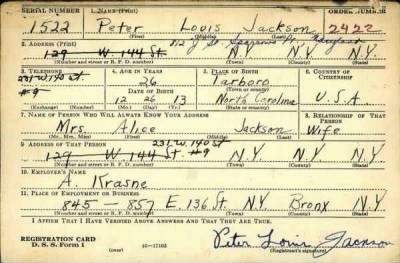 SERIAL NUMBER 1. NAME (Print) ORDER NUMBER
1522 Peter Louis Jackson 2422
(First) (Middle) (Last)
2. ADDRESS (Print)
129 W. 144 St. N.Y. N.Y.
(Number and street or R. F. D. number) (Town) (County) (State)
3. TELEPHONE 4. AGE IN YEARS 5. PLACE OF BIRTH 6. COUNTRY OF CITIZENSHIP
231 W. 140 St 26 Tarboro
#9 DATE OF BIRTH (Town or county)
12 26 13 North Carolina U.S.A
(Exchange) (Number) (Mo.) (Day) (Yr.) (State or country)
7. NAME OF PERSON WHO WILL ALWAYS KNOW YOUR ADDRESS 8. RELATIONSHIP OF THAT PERSON
Mrs. Alice Jackson Wife
(Mr., Mrs., Miss) (First) (Middle) (Last)
9. ADDRESS OF THAT PERSON 231 W. 140 St. #9
129 W. 144 St. N.Y. N.Y. N.Y.
(Number and street or R. F. D. number) (Town) (County) (State)
10. EMPLOYER'S NAME
A. Krasne
11. PLACE OF EMPLOYMENT OR BUSINESS
845 - 857 E. 136 St. N.Y. Bronx N.Y.
(Number and street or R. F. D. number) (Town) (County) (State)
I AFFIRM THAT I HAVE VERIFIED ABOVE ANSWERS AND THAT THEY ARE TRUE.
REGISTRATION CARD
D. S. S. Form 1 (over) 16—17105 Peter Louis Jackson
(Registrant's signature)